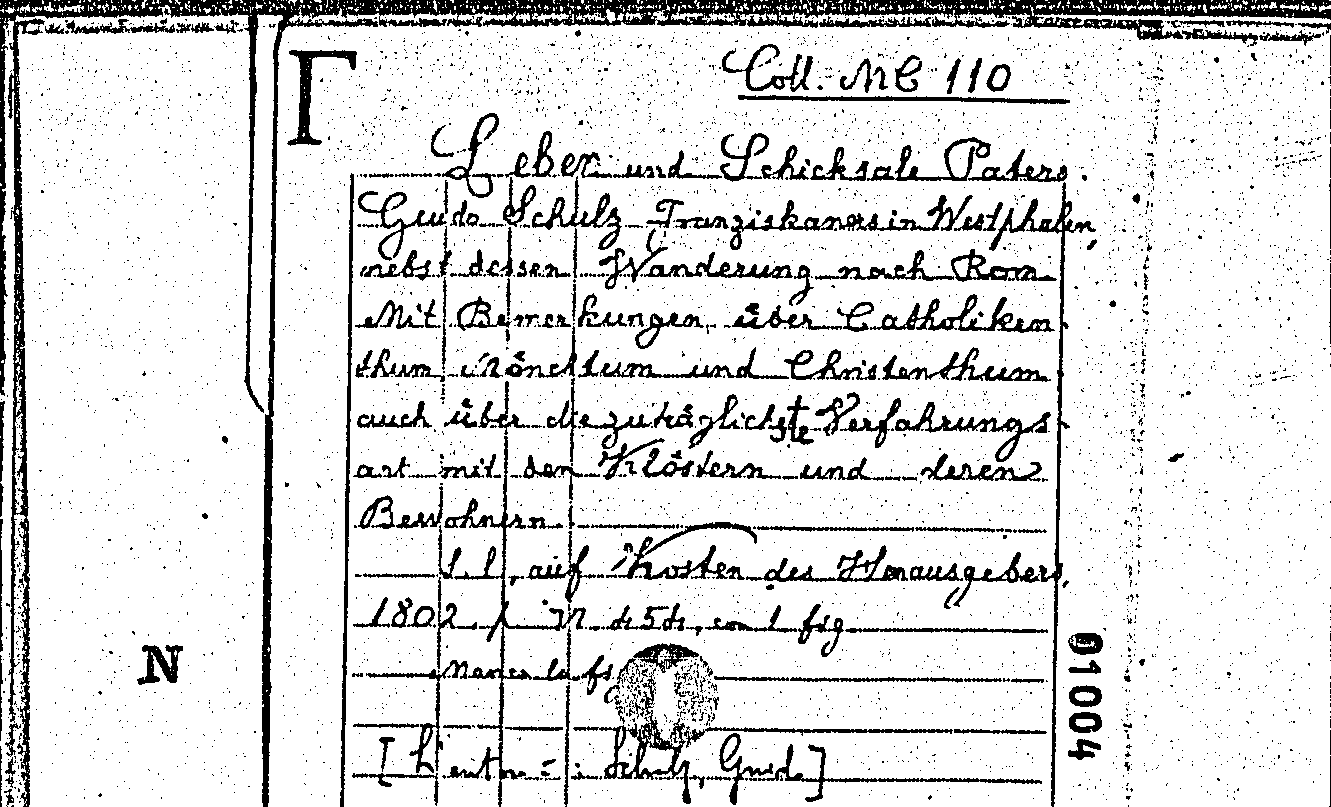 Γ
Coll. MC 110
Leben und Schicksale Paters
Guido Schulz Franziskaners in Westphalen,
nebst dessen Wanderung nach Rom
Mit Bemerkungen über Catholiken
thum Mönchtum und Christenthum
auch über die zuträglichste Verfahrungs
art mit den Klöstern und deren
Bewohnern.
s.l., auf Kosten des Herausgebers,
1802. 1 fig
manca la fig
N
01004
[ Schulz, Guido]